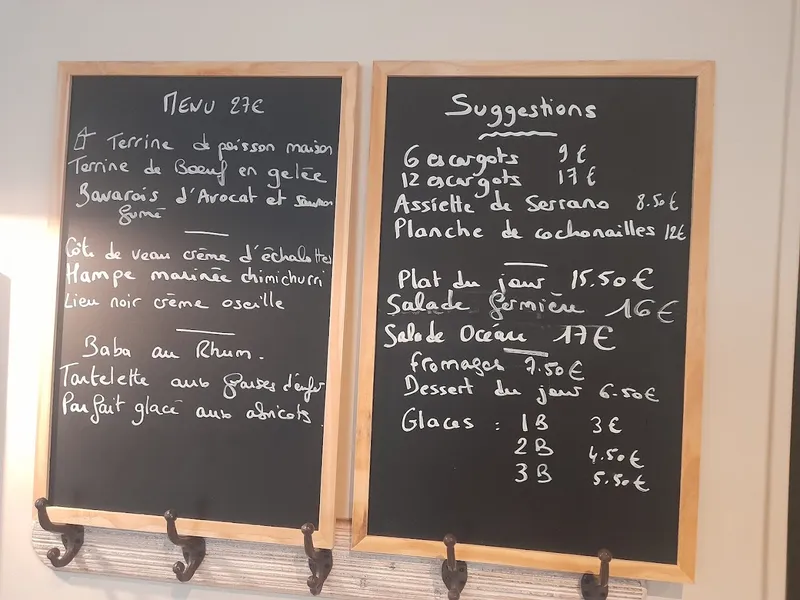 MENU 27€
Terrine de poisson maison
Terrine de Boeuf en gelée
Bavarois d'Avocat et saumon
fumé
Côte de veau crème d'échalottes
Hampe marinée chimichurri
Lieu noir crème oseille
Baba au Rhum.
Tartelette aux fraises d'enfer
Parfait glacé aux abricots.
Suggestions
6 escargots 9€
12 escargots 17€
Assiette de Serrano 8.50€
Planche de cochonailles 12€
Plat du jour 15.50€
Salade fermière 16€
Salade Océane 17€
fromages 7.50€
Dessert du jour 6.50€
Glaces : 1B 3€
2B 4.50€
3B 5.50€